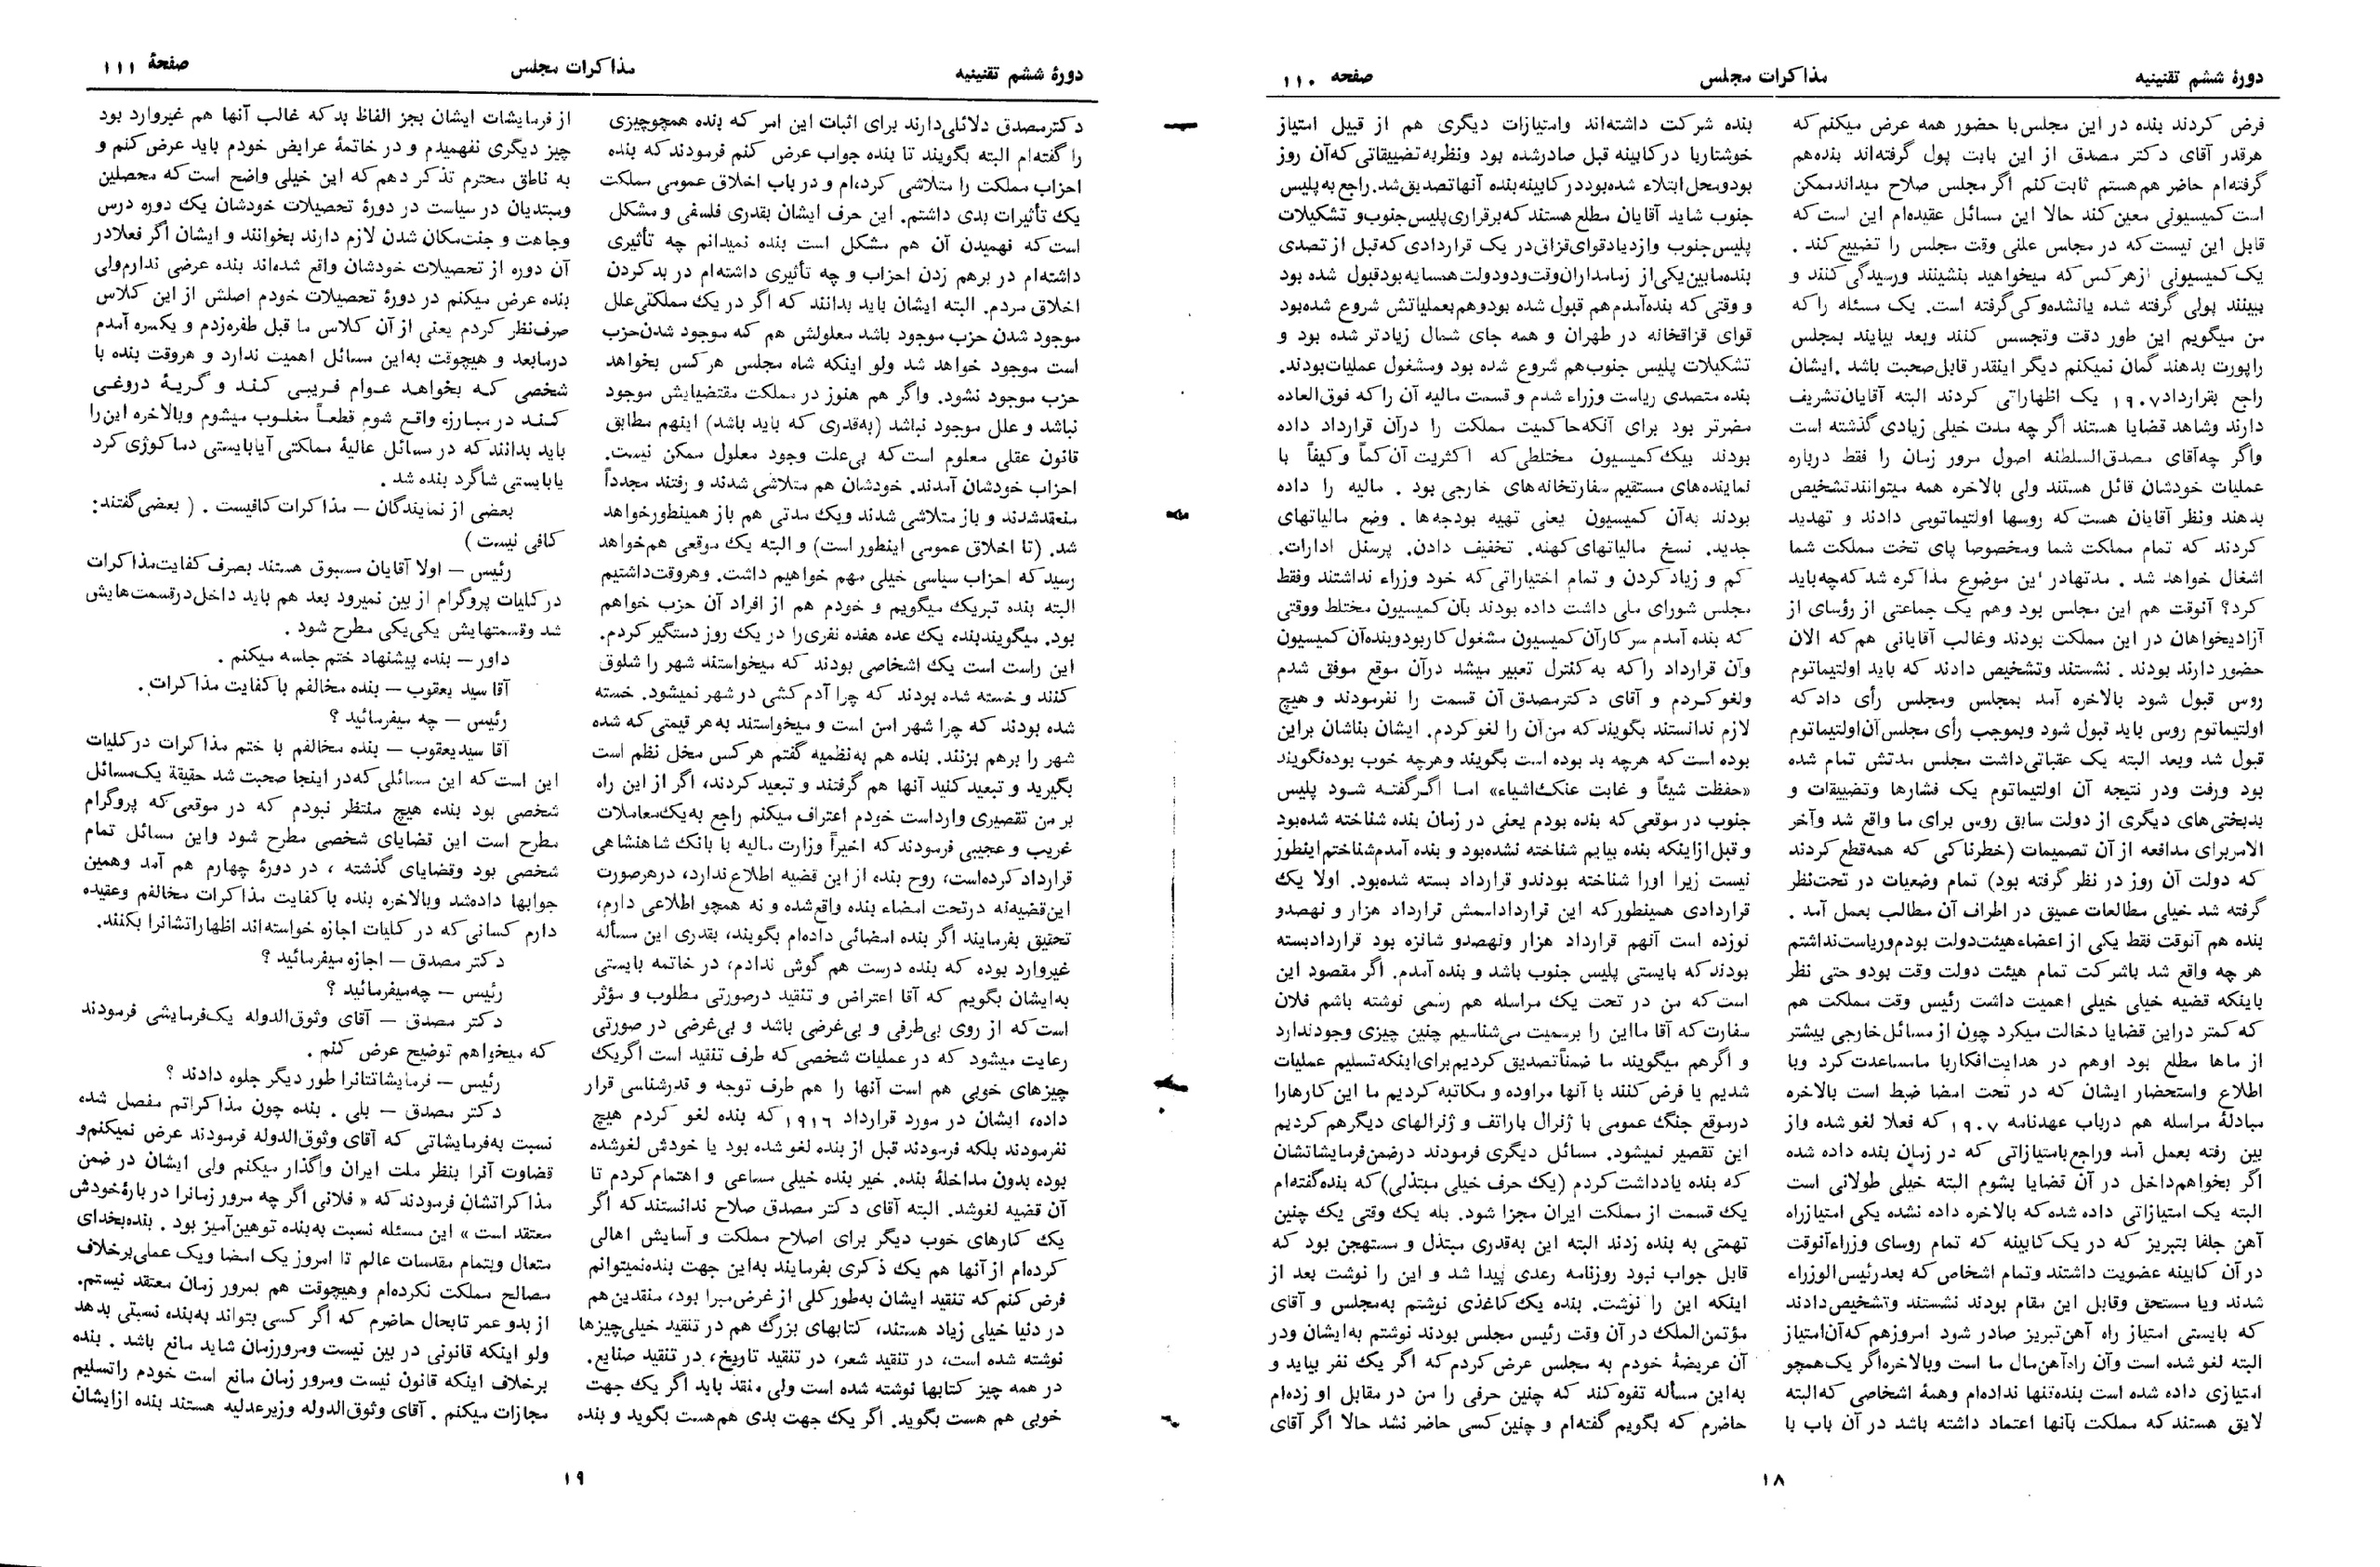 دورهٔ ششم تقنینیه
مذاکرات مجلس
صفحه ۱۱۰
فرض کردند بنده در این مجلس با حضور همه عرض میکنم که
هرقدر آقای دکتر مصدق از این بابت پول گرفته‌اند بنده‌هم
گرفته‌ام حاضر هم هستم ثابت کنم اگر مجلس صلاح میداند ممکن
است کمیسیونی معین کند حالا این مسائل عقیده‌ام این است که
قابل این نیست که در مجلس علنی وقت مجلس را تضییع کند .
یک کمیسیونی ازهر کس که میخواهید بنشینند ورسیدگی کنند و
ببینند پولی گرفته شده یا نشده و کی گرفته است. یک مسئله را که
من میگویم این طور دقت وتجسس کنند وبعد بیایند بمجلس
راپورت بدهند گمان نمیکنم دیگر اینقدر قابل صحبت باشد .ایشان
راجع بقرارداد ۱۹۰۷ یک اظهاراتی کردند البته آقایان تشریف
دارند وشاهد قضایا هستند اگر چه مدت خیلی زیادی گذشته است
واگر چه آقای مصدق‌السلطنه اصول مرور زمان را فقط درباره
عملیات خودشان قائل هستند ولی بالاخره همه میتوانند تشخیص
بدهند ونظر آقایان هست که روسها اولتیماتومی دادند و تهدید
کردند که تمام مملکت شما ومخصوصا پای تخت مملکت شما
اشغال خواهد شد . مدتها در این موضوع مذاکره شد که چه باید
کرد؟ آنوقت هم این مجلس بود وهم یک جماعتی از رؤسای از
آزادیخواهان در این مملکت بودند وغالب آقایانی هم که الان
حضور دارند بودند . نشستند وتشخیص دادند که باید اولتیماتوم
روس قبول شود بالاخره آمد بمجلس ومجلس رأی داد که
اولتیماتوم روس باید قبول شود وبموجب رأی مجلس آن اولتیماتوم
قبول شد وبعد البته یک عقباتی داشت مجلس مدتش تمام شده
بود ورفت ودر نتیجه آن اولتیماتوم یک فشارها وتضییقات و
بدبختی‌های دیگری از دولت سابق روس برای ما واقع شد وآخر
الامر برای مدافعه از آن تصمیمات (خطرناکی که همه قطع کردند
که دولت آن روز در نظر گرفته بود) تمام وضعیات در تحت نظر
گرفته شد خیلی مطالعات عمیق در اطراف آن مطالب بعمل آمد .
بنده هم آنوقت فقط یکی از اعضاء هیئت دولت بودم وریاست نداشتم
هر چه واقع شد باشرکت تمام هیئت دولت وقت بودو حتی نظر
باینکه قضیه خیلی خیلی اهمیت داشت رئیس وقت مملکت هم
که کمتر دراین قضایا دخالت میکرد چون از مسائل خارجی بیشتر
از ماها مطلع بود اوهم در هدایت افکاربا ما مساعدت کرد وبا
اطلاع واستحضار ایشان که در تحت امضا ضبط است بالاخره
مبادلهٔ مراسله هم درباب عهدنامه ۱۹۰۷ که فعلا لغو شده واز
بین رفته بعمل آمد وراجع بامتیازاتی که در زمان بنده داده شده
اگر بخواهم داخل در آن قضایا بشوم البته خیلی طولانی است
البته یک امتیازاتی داده شده که بالاخره داده نشده یکی امتیاز راه
آهن جلفا بتبریز که در یک کابینه که تمام روسای وزراء آنوقت
در آن کابینه عضویت داشتند وتمام اشخاص که بعد رئیس الوزراء
شدند ویا مستحق وقابل این مقام بودند نشستند وتشخیص دادند
که بایستی امتیاز راه آهن تبریز صادر شود امروزهم که آن امتیاز
البته لغو شده است وآن راه‌آهن مال ما است وبالاخره اگر یک همچو
امتیازی داده شده است بنده تنها نداده‌ام وهمهٔ اشخاصی که البته
لایق هستند که مملکت بآنها اعتماد داشته باشد در آن باب با
بنده شرکت داشته‌اند وامتیازات دیگری هم از قبیل امتیاز
خوشتاریا در کابینه قبل صادر شده بود ونظر به تضییقاتی که آن روز
بود ومحل ابتلاء شده بود در کابینه بنده آنها تصدیق شد. راجع به پلیس
جنوب شاید آقایان مطلع هستند که برقراری پلیس جنوب و تشکیلات
پلیس جنوب وازدیاد قوای قزاق در یک قراردادی که قبل از تصدی
بنده مابین یکی از زمامداران وقت ودو دولت همسایه بود قبول شده بود
و وقتی که بنده آمدم هم قبول شده بود وهم بعملیاتش شروع شده بود
قوای قزاقخانه در طهران و همه جای شمال زیادتر شده بود و
تشکیلات پلیس جنوب هم شروع شده بود ومشغول عملیات بودند.
بنده متصدی ریاست وزراء شدم و قسمت مالیه آن را که فوق‌العاده
مضرتر بود برای آنکه حاکمیت مملکت را درآن قرارداد داده
بودند بیک کمیسیون مختلطی که اکثریت آن کماً و کیفاً با
نماینده‌های مستقیم سفارتخانه‌های خارجی بود . مالیه را داده
بودند به‌آن کمیسیون یعنی تهیه بودجه‌ها . وضع مالیاتهای
جدید. نسخ مالیاتهای کهنه. تخفیف دادن. پرسنل ادارات.
کم و زیاد کردن و تمام اختیاراتی که خود وزراء نداشتند وفقط
مجلس شورای ملی داشت داده بودند بآن کمیسیون مختلط ووقتی
که بنده آمدم سر کار آن کمیسیون مشغول کاربود وبنده آن کمیسیون
وآن قرارداد را که به کنترل تعبیر میشد درآن موقع موفق شدم
ولغو کردم و آقای دکتر مصدق آن قسمت را نفرمودند و هیچ
لازم ندانستند بگویند که من آن را لغو کردم. ایشان بناشان براین
بوده است که هرچه بد بوده است بگویند وهرچه خوب بوده نگویند
«حفظت شیئاً و غابت عنک اشیاء» اما اگر گفته شود پلیس
جنوب در موقعی که بنده بودم یعنی در زمان بنده شناخته شده بود
و قبل از اینکه بنده بیایم شناخته نشده بود و بنده آمدم شناختم اینطور
نیست زیرا اورا شناخته بودندو قرارداد بسته شده بود. اولا یک
قراردادی همینطور که این قرارداد اسمش قرارداد هزار و نهصدو
نوزده است آنهم قرارداد هزار ونهصدو شانزده بود قراردادبسته
بودند که بایستی پلیس جنوب باشد و بنده آمدم. اگر مقصود این
است که من در تحت یک مراسله هم رسمی نوشته باشم فلان
سفارت که آقا مااین را برسمیت می‌شناسیم چنین چیزی وجودندارد
و اگرهم میگویند ما ضمناً تصدیق کردیم برای اینکه تسلیم عملیات
شدیم یا فرض کنند با آنها مراوده و مکاتبه کردیم ما این کارهارا
درموقع جنگ عمومی با ژنرال باراتف و ژنرالهای دیگرهم کردیم
این تقصیر نمیشود. مسائل دیگری فرمودند درضمن فرمایشاتشان
که بنده یادداشت کردم (یک حرف خیلی مبتذلی) که بنده گفته‌ام
یک قسمت از مملکت ایران مجزا شود. بله یک وقتی یک چنین
تهمتی به بنده زدند البته این به‌قدری مبتذل و مستهجن بود که
قابل جواب نبود روزنامه رعدی پیدا شد و این را نوشت بعد از
اینکه این را نوشت. بنده یک کاغذی نوشتم به‌مجلس و آقای
مؤتمن‌الملک در آن وقت رئیس مجلس بودند نوشتم به‌ایشان ودر
آن عریضهٔ خودم به مجلس عرض کردم که اگر یک نفر بیاید و
به‌این مسأله تفوه کند که چنین حرفی را من در مقابل او زده‌ام
حاضرم که بگویم گفته‌ام و چنین کسی حاضر نشد حالا اگر آقای
۱۸
دورهٔ ششم تقنینیه
مذاکرات مجلس
صفحهٔ ۱۱۱
دکترمصدق دلائلی‌دارند برای اثبات این امر که بنده همچوچیزی
را گفته‌ام البته بگویند تا بنده جواب عرض کنم فرمودند که بنده
احزاب مملکت را متلاشی کرده‌ام و در باب اخلاق عمومی مملکت
یک تأثیرات بدی داشتم. این حرف ایشان بقدری فلسفی و مشکل
است که فهمیدن آن هم مشکل است بنده نمیدانم چه تأثیری
داشته‌ام در برهم زدن احزاب و چه تأثیری داشته‌ام در بد کردن
اخلاق مردم. البته ایشان باید بدانند که اگر در یک مملکتی علل
موجود شدن حزب موجود باشد معلولش هم که موجود شدن حزب
است موجود خواهد شد ولو اینکه شاه مجلس هر کس بخواهد
حزب موجود نشود. واگر هم هنوز در مملکت مقتضیایش موجود
نباشد و علل موجود نباشد (به‌قدری که باید باشد) اینهم مطابق
قانون عقلی معلوم است که بی‌علت وجود معلول ممکن نیست.
احزاب خودشان آمدند. خودشان هم متلاشی شدند و رفتند مجدداً
منعقد شدند و باز متلاشی شدند ویک مدتی هم باز همینطورخواهد
شد. (تا اخلاق عمومی اینطور است) و البته یک موقعی هم خواهد
رسید که احزاب سیاسی خیلی مهم خواهیم داشت. وهروقت داشتیم
البته بنده تبریک میگویم و خودم هم از افراد آن حزب خواهم
بود. میگویند بنده یک عده هفده نفری را در یک روز دستگیر کردم.
این راست است یک اشخاصی بودند که میخواستند شهر را شلوق
کنند و خسته شده بودند که چرا آدم کشی در شهر نمیشود. خسته
شده بودند که چرا شهر امن است و میخواستند به هر قیمتی که شده
شهر را برهم بزنند. بنده هم به‌نظمیه گفتم هر کس مخل نظم است
بگیرید و تبعید کنید آنها هم گرفتند و تبعید کردند، اگر از این راه
بر من تقصیری وارداست خودم اعتراف میکنم راجع به‌یک معاملات
غریب و عجیبی فرمودند که اخیراً وزارت مالیه با بانک شاهنشاهی
قرارداد کرده‌است، روح بنده از این قضیه اطلاع ندارد، درهرصورت
این قضیه‌نه درتحت امضاء بنده واقع‌شده و نه همچو اطلاعی دارم،
تحقیق بفرمایند اگر بنده امضائی داده‌ام بگویند، بقدری این مسأله
غیروارد بوده که بنده درست هم گوش ندادم، در خاتمه بایستی
به‌ایشان بگویم که آقا اعتراض و تنقید درصورتی مطلوب و مؤثر
است که از روی بی‌طرفی و بی‌غرضی باشد و بی‌غرضی در صورتی
رعایت میشود که در عملیات شخصی که طرف تنقید است اگریک
چیزهای خوبی هم است آنها را هم طرف توجه و قدرشناسی قرار
داده، ایشان در مورد قرارداد ۱۹۱۶ که بنده لغو کردم هیچ
نفرمودند بلکه فرمودند قبل از بنده لغو شده بود یا خودش لغوشده
بوده بدون مداخلهٔ بنده. خیر بنده خیلی مساعی و اهتمام کردم تا
آن قضیه لغوشد. البته آقای دکتر مصدق صلاح ندانستند که اگر
یک کارهای خوب دیگر برای اصلاح مملکت و آسایش اهالی
کرده‌ام از آنها هم یک ذکری بفرمایند به‌این جهت بنده‌نمیتوانم
فرض کنم که تنقید ایشان به‌طور کلی از غرض مبرا بود، منقدین هم
در دنیا خیلی زیاد هستند، کتابهای بزرگ هم در تنقید خیلی چیزها
نوشته شده است، در تنقید شعر، در تنقید تاریخ، در تنقید صنایع.
در همه چیز کتابها نوشته شده است ولی منقد باید اگر یک جهت
خوبی هم هست بگوید. اگر یک جهت بدی هم هست بگوید و بنده
از فرمایشات ایشان بجز الفاظ بد که غالب آنها هم غیروارد بود
چیز دیگری نفهمیدم و در خاتمهٔ عرایض خودم باید عرض کنم و
به ناطق محترم تذکر دهم که این خیلی واضح است که محصلین
ومبتدیان در سیاست در دورهٔ تحصیلات خودشان یک دوره درس
وجاهت و جنت‌مکان شدن لازم دارند بخوانند و ایشان اگر فعلادر
آن دوره از تحصیلات خودشان واقع شده‌اند بنده عرضی ندارم ولی
بنده عرض میکنم در دورهٔ تحصیلات خودم اصلش از این کلاس
صرف‌نظر کردم یعنی از آن کلاس ما قبل طفره‌زدم و یکسره آمدم
درمابعد و هیچوقت به‌این مسائل اهمیت ندارد و هروقت بنده با
شخصی که بخواهد عوام فریبی کند و گریهٔ دروغی
کند در مبارزه واقع شوم قطعاً مغلوب میشوم وبالاخره این‌را
باید بدانند که در مسائل عالیهٔ مملکتی آیابایستی دماکوژی کرد
یابایستی شاگرد بنده شد .
بعضی از نمایندگان — مذاکرات کافیست . ( بعضی گفتند :
کافی نیست )
رئیس — اولا آقایان مسبوق هستند بصرف کفایت مذاکرات
در کلیات پروگرام از بین نمیرود بعد هم باید داخل درقسمت‌هایش
شد وقسمتهایش یکی یکی مطرح شود .
داور — بنده پیشنهاد ختم جلسه میکنم .
آقا سید یعقوب — بنده مخالفم با کفایت مذاکرات .
رئیس — چه میفرمائید ؟
آقا سید یعقوب — بنده مخالفم با ختم مذاکرات در کلیات
این است که این مسائلی که در اینجا صحبت شد حقیقة یک مسائل
شخصی بود بنده هیچ منتظر نبودم که در موقعی که پروگرام
مطرح است این قضایای شخصی مطرح شود واین مسائل تمام
شخصی بود وقضایای گذشته ، در دورهٔ چهارم هم آمد وهمین
جوابها داده شد وبالاخره بنده با کفایت مذاکرات مخالفم وعقیده
دارم کسانی که در کلیات اجازه خواسته‌اند اظهاراتشانرا بکنند.
دکتر مصدق — اجازه میفرمائید ؟
رئیس — چه‌میفرمائید ؟
دکتر مصدق — آقای وثوق‌الدوله یک فرمایشی فرمودند
که میخواهم توضیح عرض کنم .
رئیس — فرمایشاتتانرا طور دیگر جلوه دادند ؟
دکتر مصدق — بلی . بنده چون مذاکراتم مفصل شده
نسبت به‌فرمایشاتی که آقای وثوق‌الدوله فرمودند عرض نمیکنم و
قضاوت آنرا بنظر ملت ایران واگذار میکنم ولی ایشان در ضمن
مذاکراتشان فرمودند که « فلانی اگر چه مرور زمانرا در بارهٔ خودش
معتقد است » این مسئله نسبت به‌بنده توهین‌آمیز بود . بنده‌بخدای
متعال وبتمام مقدسات عالم تا امروز یک امضا ویک عملی برخلاف
مصالح مملکت نکرده‌ام وهیچوقت هم بمرور زمان معتقد نیستم.
از بدو عمر تابحال حاضرم که اگر کسی بتواند به‌بنده نسبتی بدهد
ولو اینکه قانونی در بین نیست ومرورزمان شاید مانع باشد . بنده
برخلاف اینکه قانون نیست ومرور زمان مانع است خودم راتسلیم
مجازات میکنم . آقای وثوق‌الدوله وزیرعدلیه هستند بنده ازایشان
۱۹